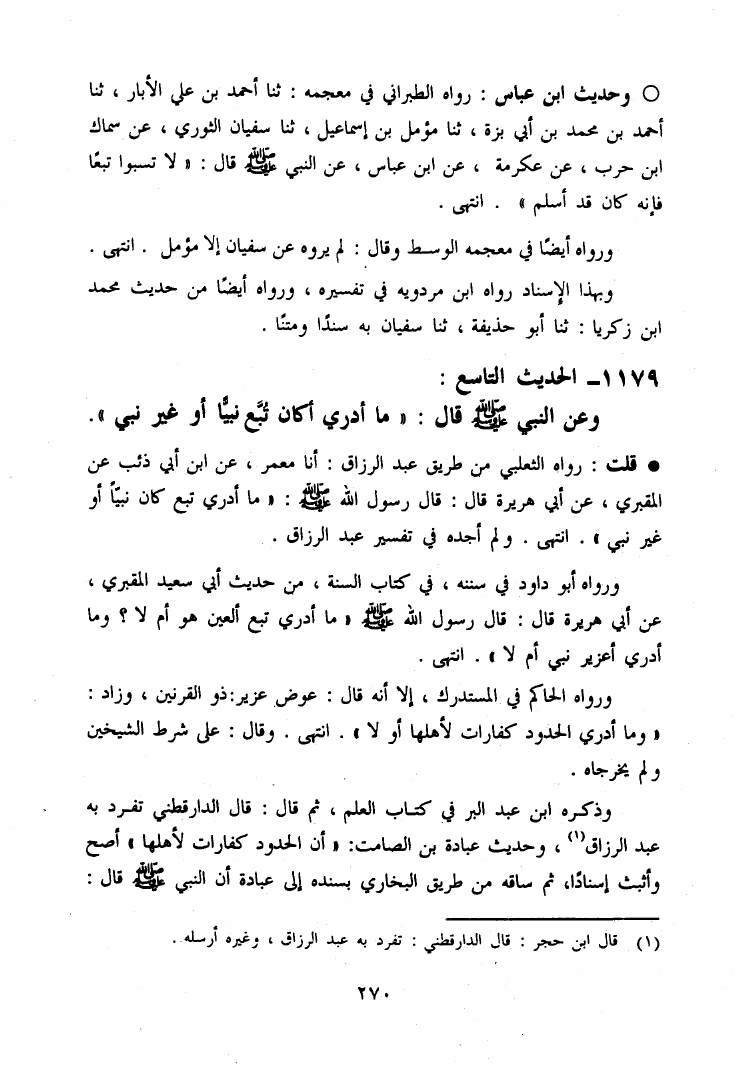 ○ وحديث ابن عباس : رواه الطبراني في معجمه : ثنا أحمد بن علي الأبار ، ثنا
أحمد بن محمد بن أبي بزة ، ثنا مؤمل بن إسماعيل ، ثنا سفيان الثوري ، عن سماك
ابن حرب ، عن عكرمة ، عن ابن عباس ، عن النبي ﷺ قال : « لا تسبوا تبعًا
فإنه كان قد أسلم » . انتهى .
ورواه أيضًا في معجمه الوسط وقال : لم يروه عن سفيان إلا مؤمل . انتهى .
وبهذا الإسناد رواه ابن مردويه في تفسيره ، ورواه أيضًا من حديث محمد
ابن زكريا : ثنا أبو حذيفة ، ثنا سفيان به سندًا ومتنًا .
١١٧٩ـ الحديث التاسع :
وعن النبي ﷺ قال : « ما أدري أكان تُبَّع نبيًّا أو غير نبي ».
● قلت : رواه الثعلبي من طريق عبد الرزاق : أنا معمر ، عن ابن أبي ذئب عن
المقبري ، عن أبي هريرة قال : قال رسول الله ﷺ : « ما أدري تبع كان نبيًّا أو
غير نبي » . انتهى . ولم أجده في تفسير عبد الرزاق .
ورواه أبو داود في سننه ، في كتاب السنة ، من حديث أبي سعيد المقبري ،
عن أبي هريرة قال : قال رسول الله ﷺ « ما أدري تبع ألعين هو أم لا ؟ وما
أدري أعزير نبي أم لا » . انتهى .
ورواه الحاكم في المستدرك ، إلا أنه قال : عوض عزير:ذو القرنين ، وزاد :
« وما أدري الحدود كفارات لأهلها أو لا » . انتهى . وقال : على شرط الشيخين
ولم يخرجاه .
وذكره ابن عبد البر في كتاب العلم ، ثم قال : قال الدارقطني تفرد به
عبد الرزاق(١) ، وحديث عبادة بن الصامت: « أن الحدود كفارات لأهلها » أصح
وأثبت إسنادًا، ثم ساقه من طريق البخاري بسنده إلى عبادة أن النبي ﷺ قال :
(١) قال ابن حجر : قال الدارقطني : تفرد به عبد الرزاق ، وغيره أرسله .
٢٧٠